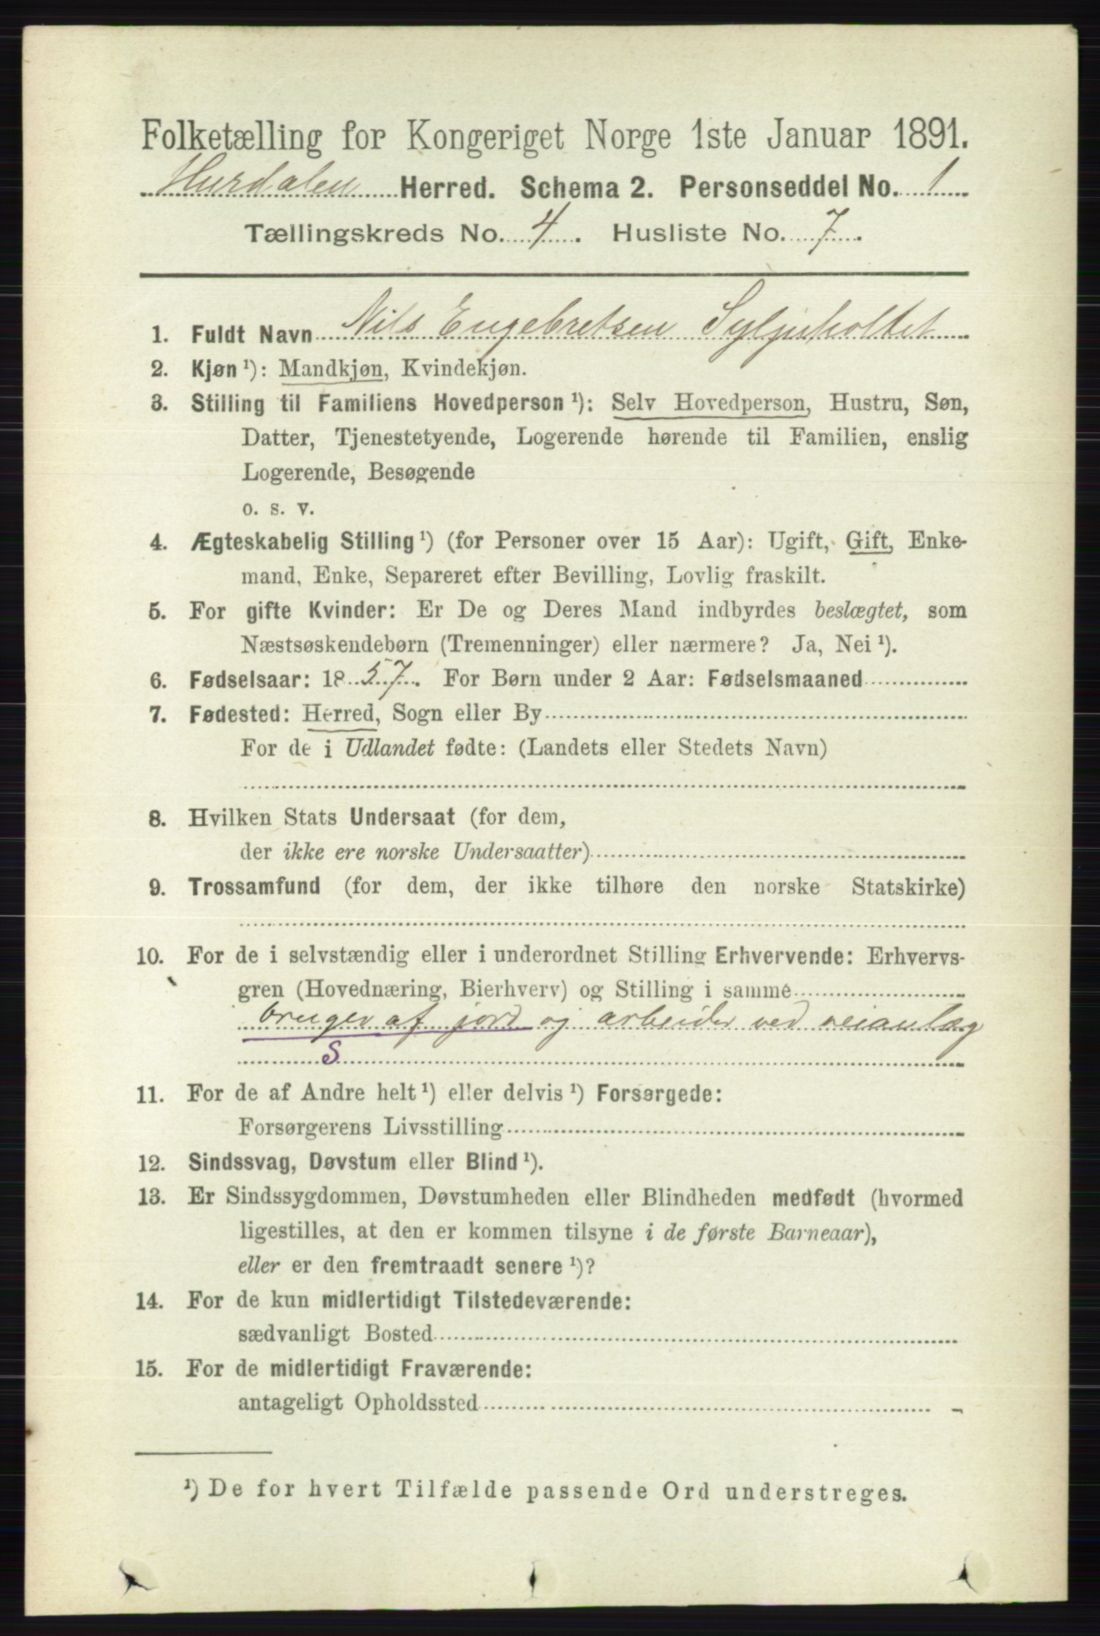 Folketælling for Kongeriget Norge 1ste Januar 1891.
Hurdalen Herred. Schema 2. Personseddel No. 1
Tællingskreds No. 4. Husliste No. 7.
1. Fuldt Navn Nils Engebretsen Syljuholtet
2. Kjøn ¹): Mandkjøn, Kvindekjøn.
3. Stilling til Familiens Hovedperson ¹): Selv Hovedperson, Hustru, Søn,
Datter, Tjenestetyende, Logerende hørende til Familien, enslig
Logerende, Besøgende
o. s. v.
4. Ægteskabelig Stilling ¹) (for Personer over 15 Aar): Ugift, Gift, Enke-
mand, Enke, Separeret efter Bevilling, Lovlig fraskilt.
5. For gifte Kvinder: Er De og Deres Mand indbyrdes beslægtet, som
Næstsøskendebørn (Tremenninger) eller nærmere? Ja, Nei ¹).
6. Fødselsaar: 1857. For Børn under 2 Aar: Fødselsmaaned
7. Fødested: Herred, Sogn eller By
For de i Udlandet fødte: (Landets eller Stedets Navn)
8. Hvilken Stats Undersaat (for dem,
der ikke ere norske Undersaatter)
9. Trossamfund (for dem, der ikke tilhøre den norske Statskirke)
10. For de i selvstændig eller i underordnet Stilling Erhvervende: Erhvervs-
gren (Hovednæring, Bierhverv) og Stilling i samme
bruger af jord og arbeider ved veianlæg
S
11. For de af Andre helt ¹) eller delvis ¹) Forsørgede:
Forsørgerens Livsstilling
12. Sindssvag, Døvstum eller Blind ¹).
13. Er Sindssygdommen, Døvstumheden eller Blindheden medfødt (hvormed
ligestilles, at den er kommen tilsyne i de første Barneaar),
eller er den fremtraadt senere ¹)?
14. For de kun midlertidigt Tilstedeværende:
sædvanligt Bosted
15. For de midlertidigt Fraværende:
antageligt Opholdssted
¹) De for hvert Tilfælde passende Ord understreges.